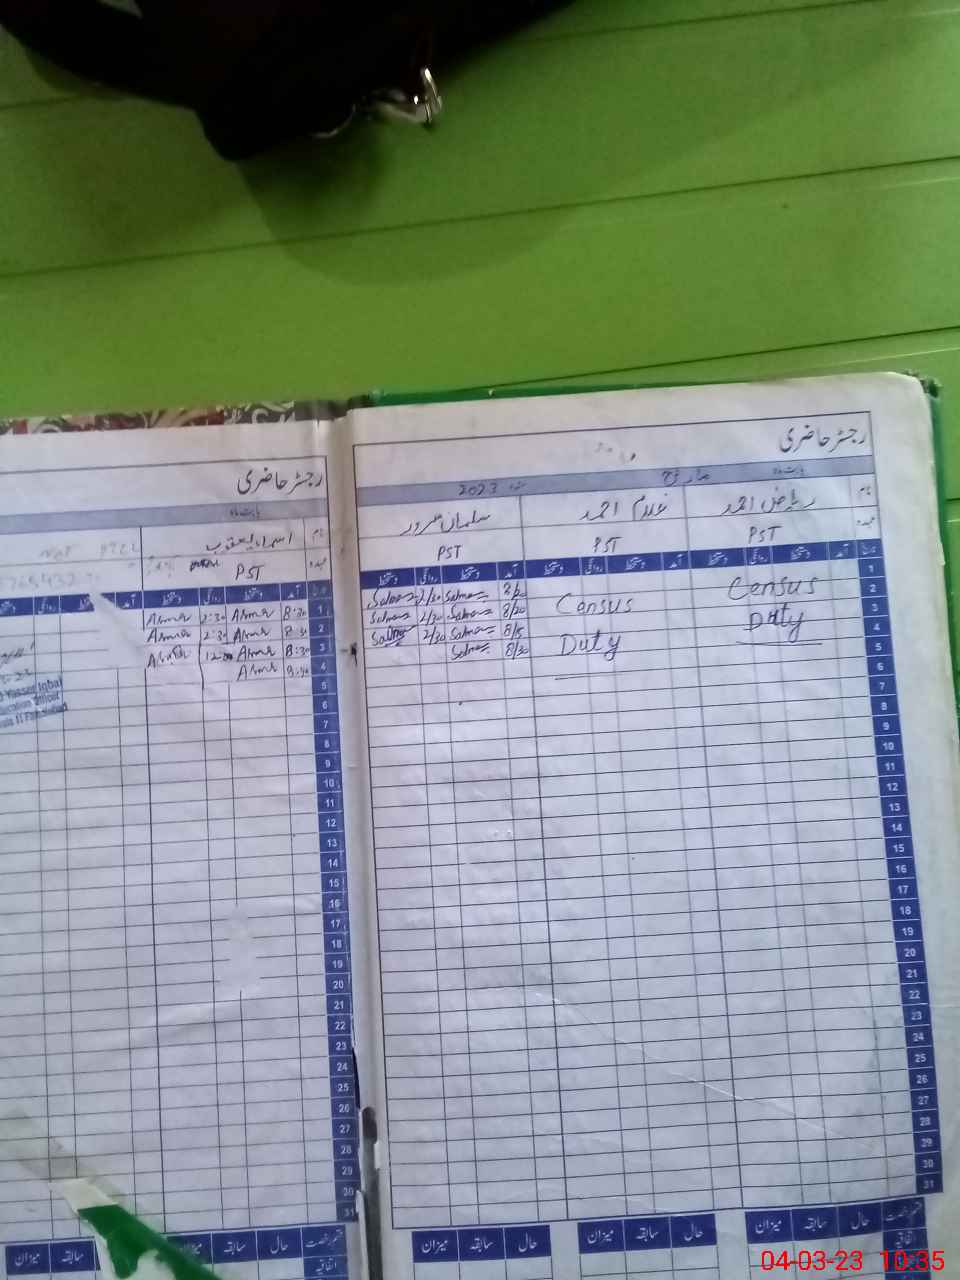 رجسٹر حاضری
بابت ماہ مارچ سنہ 2023
نام ریاض احمد غلام احمد سلمان سرور
عہدہ PST PST PST
تاریخ آمد دستخط روانگی دستخط آمد دستخط روانگی دستخط آمد دستخط روانگی دستخط
1 8/30 Salman 2/30 Salman
2 Census Census 8/30 Salman 2/30 Salman
3 Duty Duty 8/15 Salman 2/30 Salman
4 8/30 Salman
5
6
7
8
9
10
11
12
13
14
15
16
17
18
19
20
21
22
23
24
25
26
27
28
29
30
31
ختم رخصت حال سابقہ میزان حال سابقہ میزان حال سابقہ میزان
اتفاقیہ
رجسٹر حاضری
بابت ماہ
نام اسماء یعقوب
عہدہ PST
تاریخ آمد دستخط روانگی دستخط آمد روانگی دستخط
1 8:30 Asma 2:30 Asma
2 8:30 Asma 2:30 Asma
3 8:30 Asma 12:00 Asma
4 8:30 Asma
5
6
7
8
9
10
11
12
13
14
15
16
17
18
19
20
21
22
23
24
25
26
27
28
29
30
31
Yasser Iqbal
Education Officer
ختم رخصت حال سابقہ میزان سابقہ میزان
اتفاقیہ
04-03-23 10:35